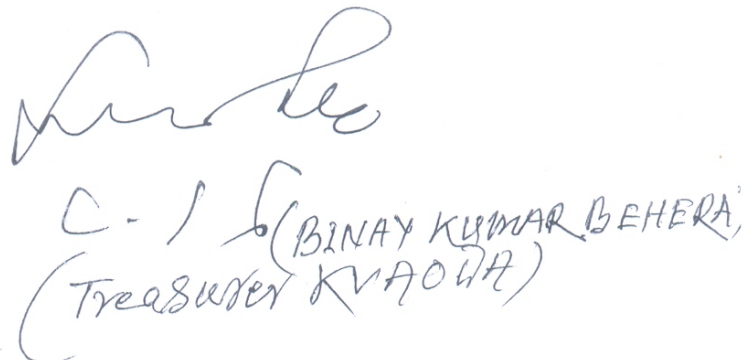 C - 1 (BINAY KUMAR BEHERA,
(Treasurer KVAOWA)